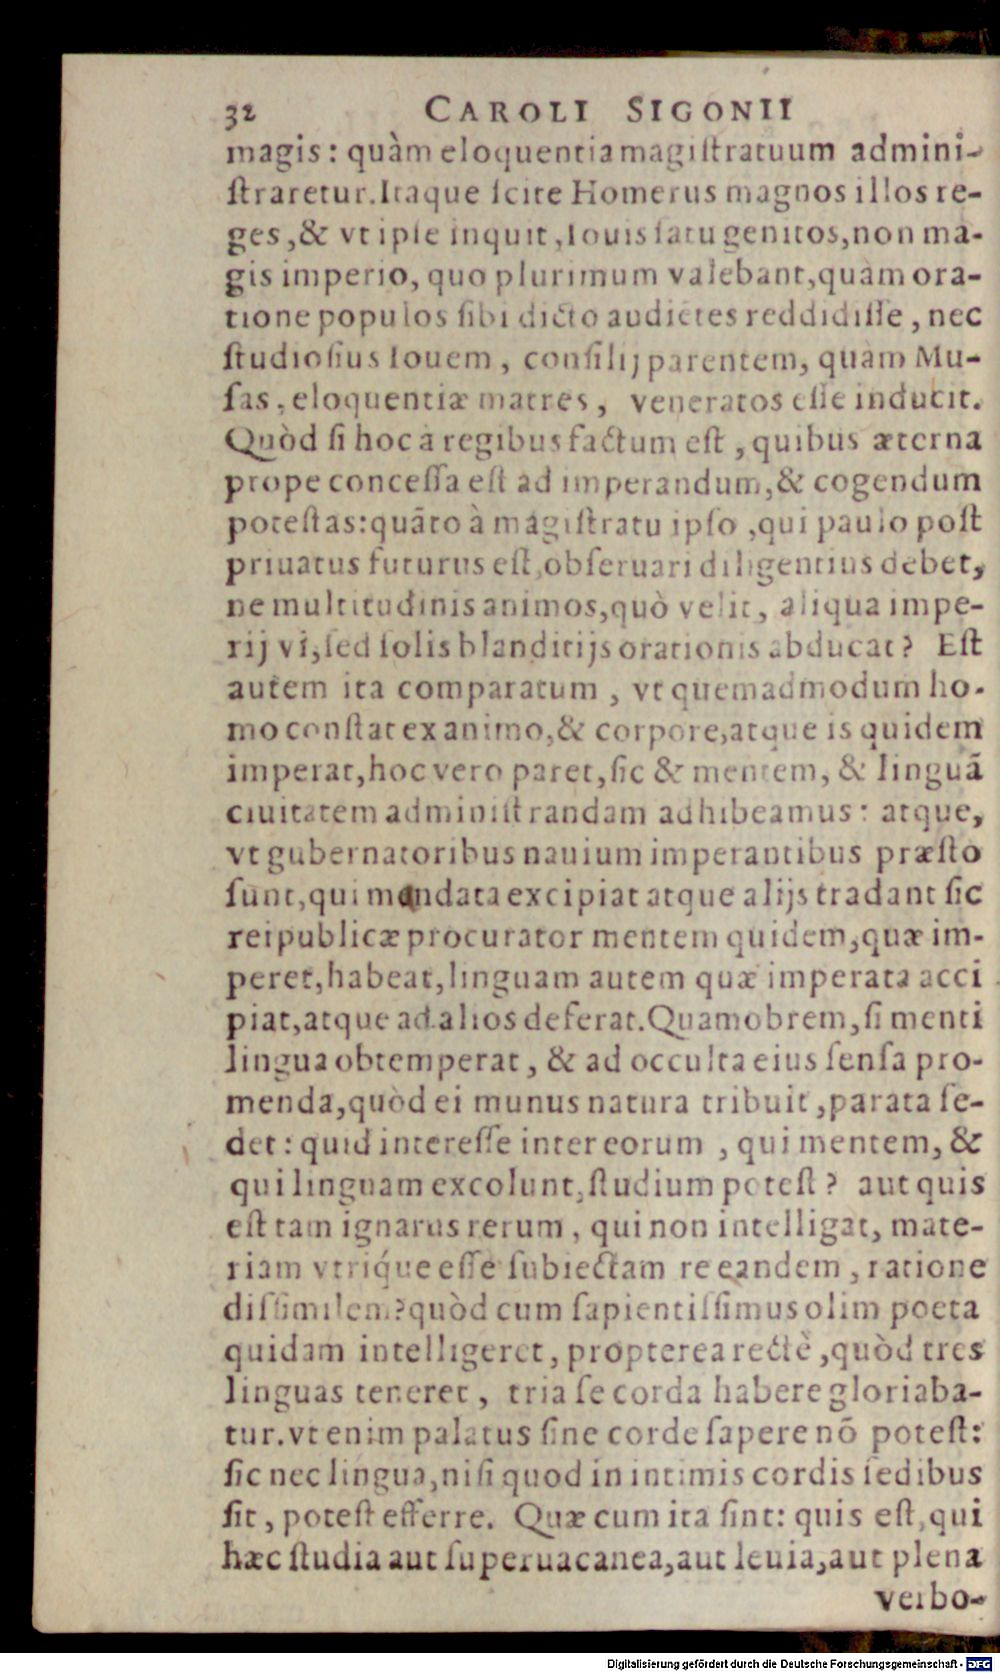 32 CAROLI SIGONII
magis: quàm eloquentia magiſtratuum admini-
ſtraretur. Itaque ſcite Homerus magnos illos re-
ges, & vt ipſe inquit, Iouis ſatu genitos, non ma-
gis imperio, quo plurimum valebant, quàm ora-
tione populos ſibi dicto audiẽtes reddidiſſe, nec
ſtudioſius Iouem, conſilij parentem, quàm Mu-
ſas, eloquentiæ matres, veneratos eſſe inducit.
Quòd ſi hoc à regibus factum eſt, quibus æterna
prope conceſſa eſt ad imperandum, & cogendum
poteſtas: quãto à magiſtratu ipſo, qui paulo poſt
priuatus futurus eſt, obſeruari diligentius debet,
ne multitudinis animos, quò velit, aliqua impe-
rij vi, ſed ſolis blanditijs orationis abducat? Eſt
autem ita comparatum, vt quemadmodum ho-
mo conſtat ex animo, & corpore, atque is quidem
imperat, hoc vero paret, ſic & mentem, & linguã
ciuitatem adminiſtrandam adhibeamus: atque,
vt gubernatoribus nauium imperantibus præſto
ſunt, qui mandata excipiat atque alijs tradant ſic
reipublicæ procurator mentem quidem, quæ im-
peret, habeat, linguam autem quæ imperata acci
piat, atque ad alios deferat. Quamobrem, ſi menti
lingua obtemperat, & ad occulta eius ſenſa pro-
menda, quòd ei munus natura tribuit, parata ſe-
det: quid intereſſe inter eorum, qui mentem, &
qui linguam excolunt, ſtudium poteſt? aut quis
eſt tam ignarus rerum, qui non intelligat, mate-
riam vtriq́ue eſſe ſubiectam re eandem, ratione
diſſimilem? quòd cum ſapientiſſimus olim poeta
quidam intelligeret, propterea rectè, quòd tres
linguas teneret, tria ſe corda habere gloriaba-
tur. vt enim palatus ſine corde ſapere nõ poteſt:
ſic nec lingua, niſi quod in intimis cordis ſedibus
ſit, poteſt efferre. Quæ cum ita ſint: quis eſt, qui
hæc ſtudia aut ſuperuacanea, aut leuia, aut plena
verbo-
Digitalisierung gefördert durch die Deutsche Forschungsgemeinschaft - DFG